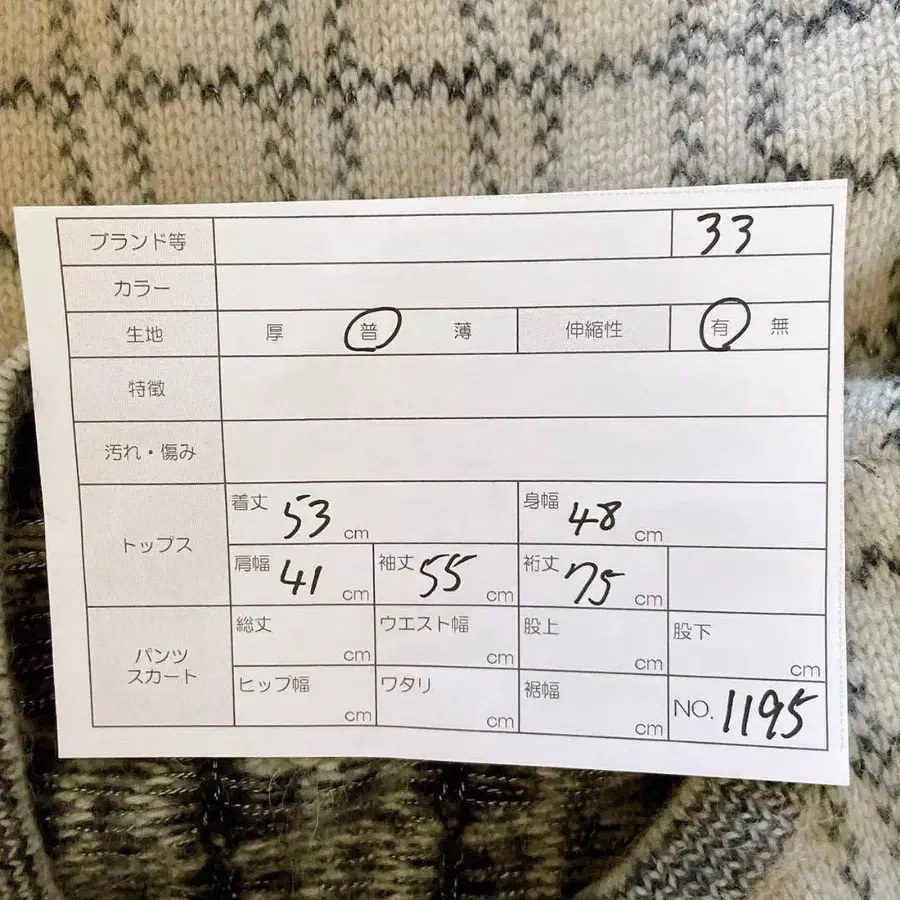 ブランド等 33
カラー
生地 厚 普 薄 伸縮性 有 無
特徴
汚れ・傷み
トップス
着丈 53 cm 身幅 48 cm
肩幅 41 cm 袖丈 55 cm 裄丈 75 cm
パンツ
スカート
総丈 cm ウエスト幅 cm 股上 cm 股下 cm
ヒップ幅 cm ワタリ cm 裾幅 cm NO. 1195